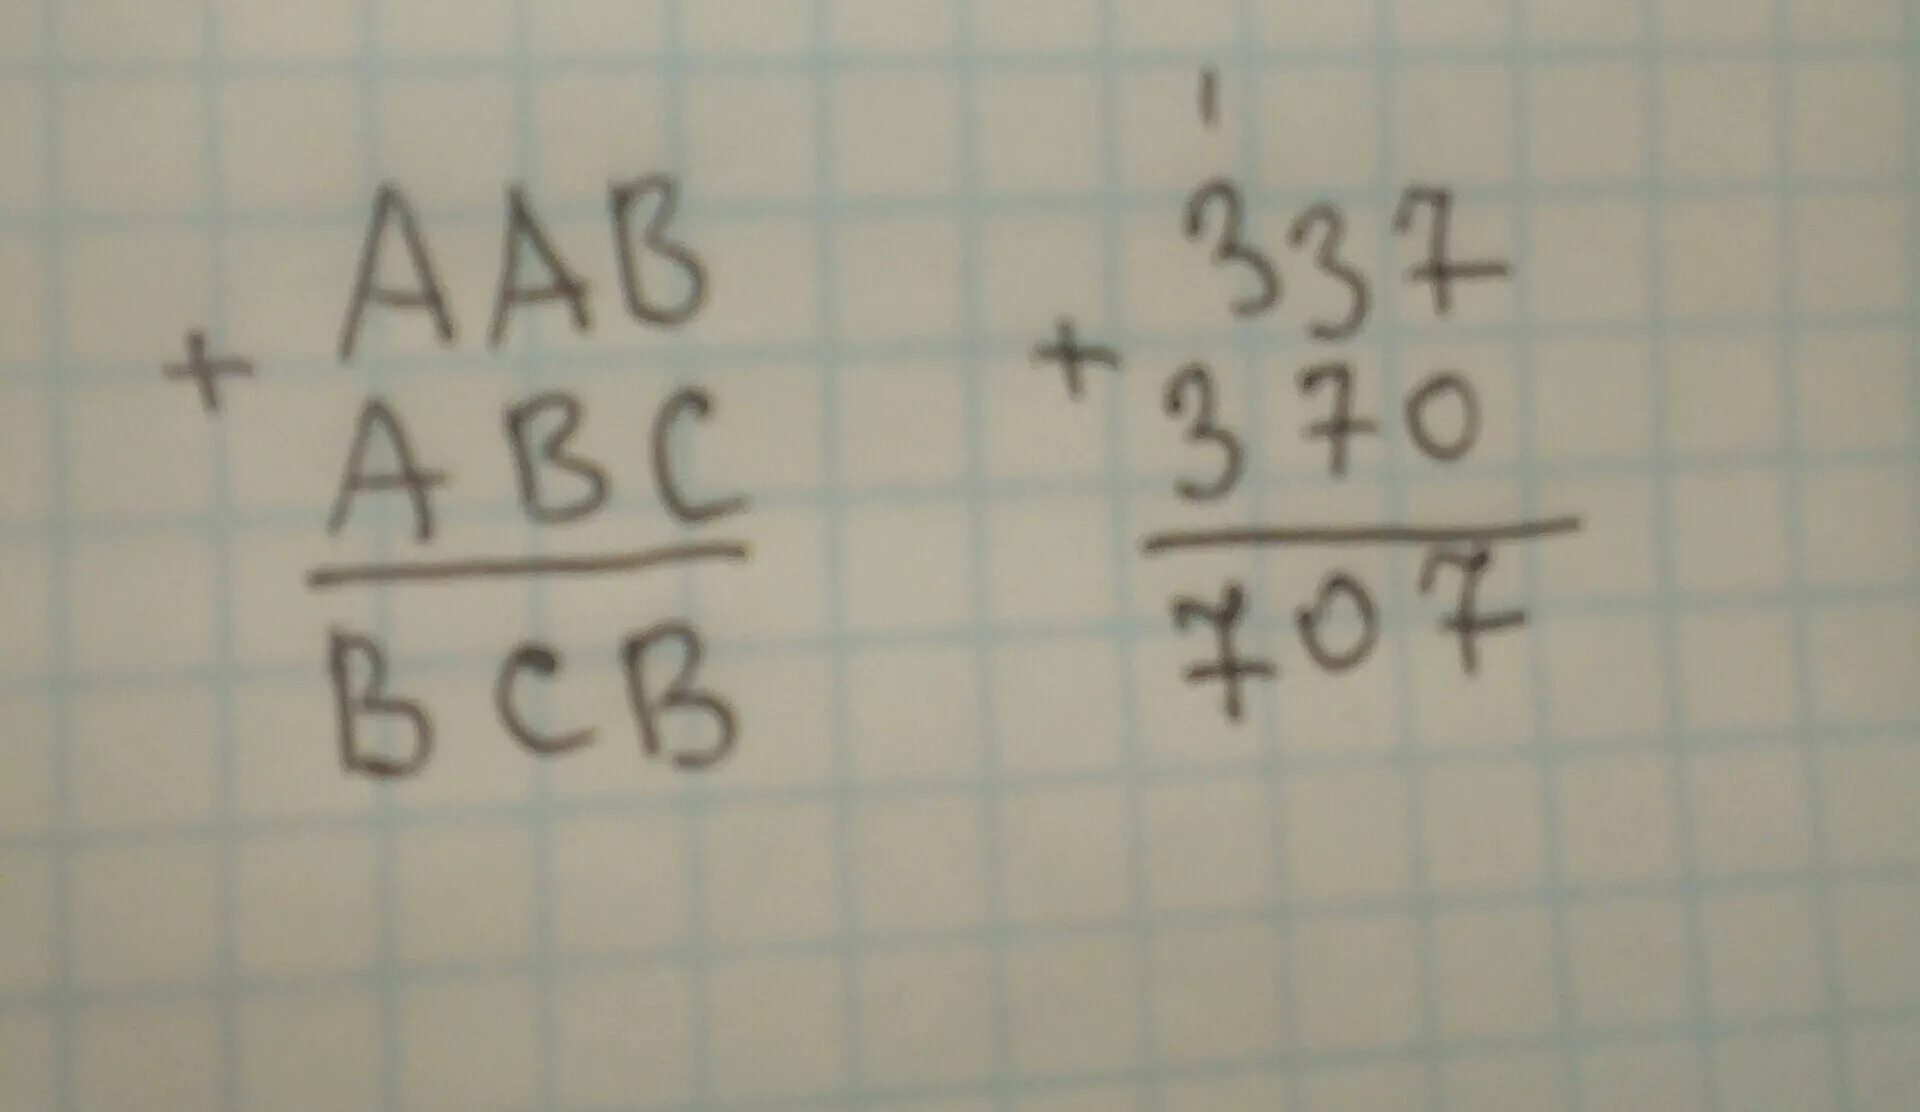 AAB
+
ABC
BCB
1
337
+
370
707